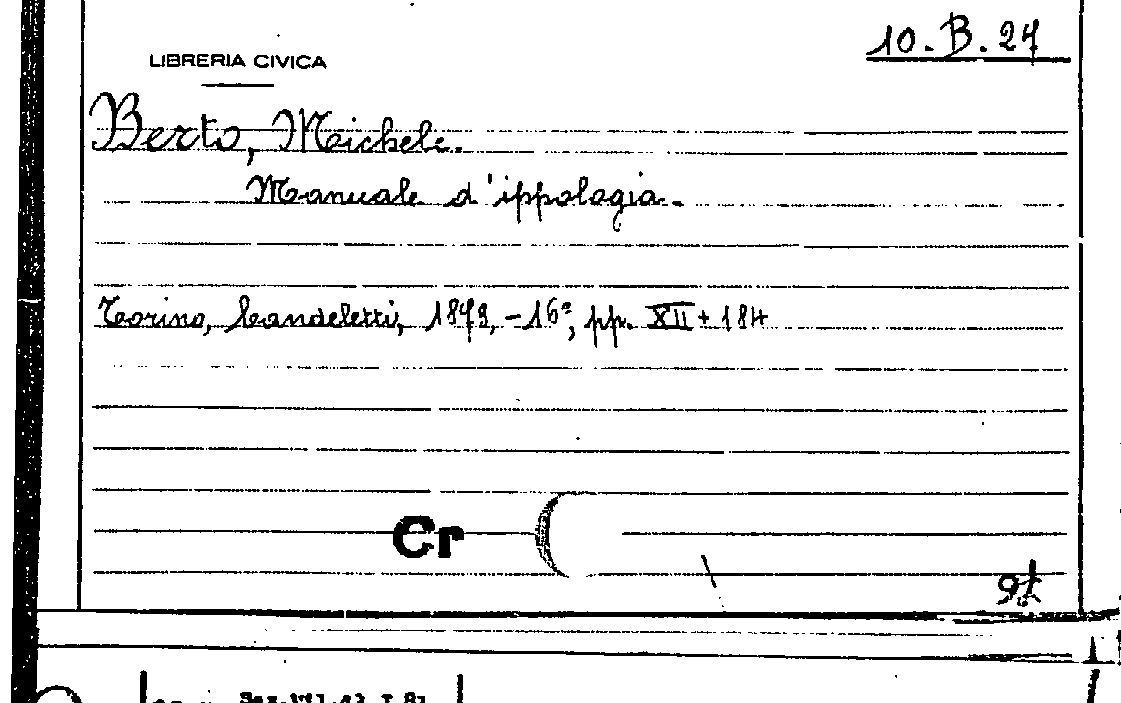 10. B. 27
LIBRERIA CIVICA
Berto, Michele.
Manuale d'ippologia.
Torino, Candeletti, 1879, - 16°, pp. XII + 184
Cr